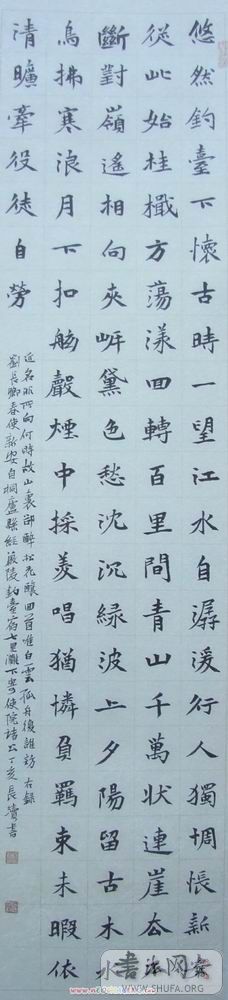 悠然釣臺下懷古時一望江水自潺湲行人獨惆悵新安
從此始桂檝方蕩漾回轉百里間青山千萬狀連崖去不
斷對嶺遙相向夾岸黛色愁沈沉綠波上夕陽留古木水
鳥拂寒浪月下扣舷聲煙中採菱唱猶憐負羈束未暇依
清曠牽役徒自勞
近名非所向何時故山裏卻醉松花釀回首唯白雲孤舟復誰訪右錄
劉長卿奉使新安自桐廬縣經嚴陵釣臺宿七里灘下寄使院諸公丁亥長書
書法网
WWW.SHUFA.ORG